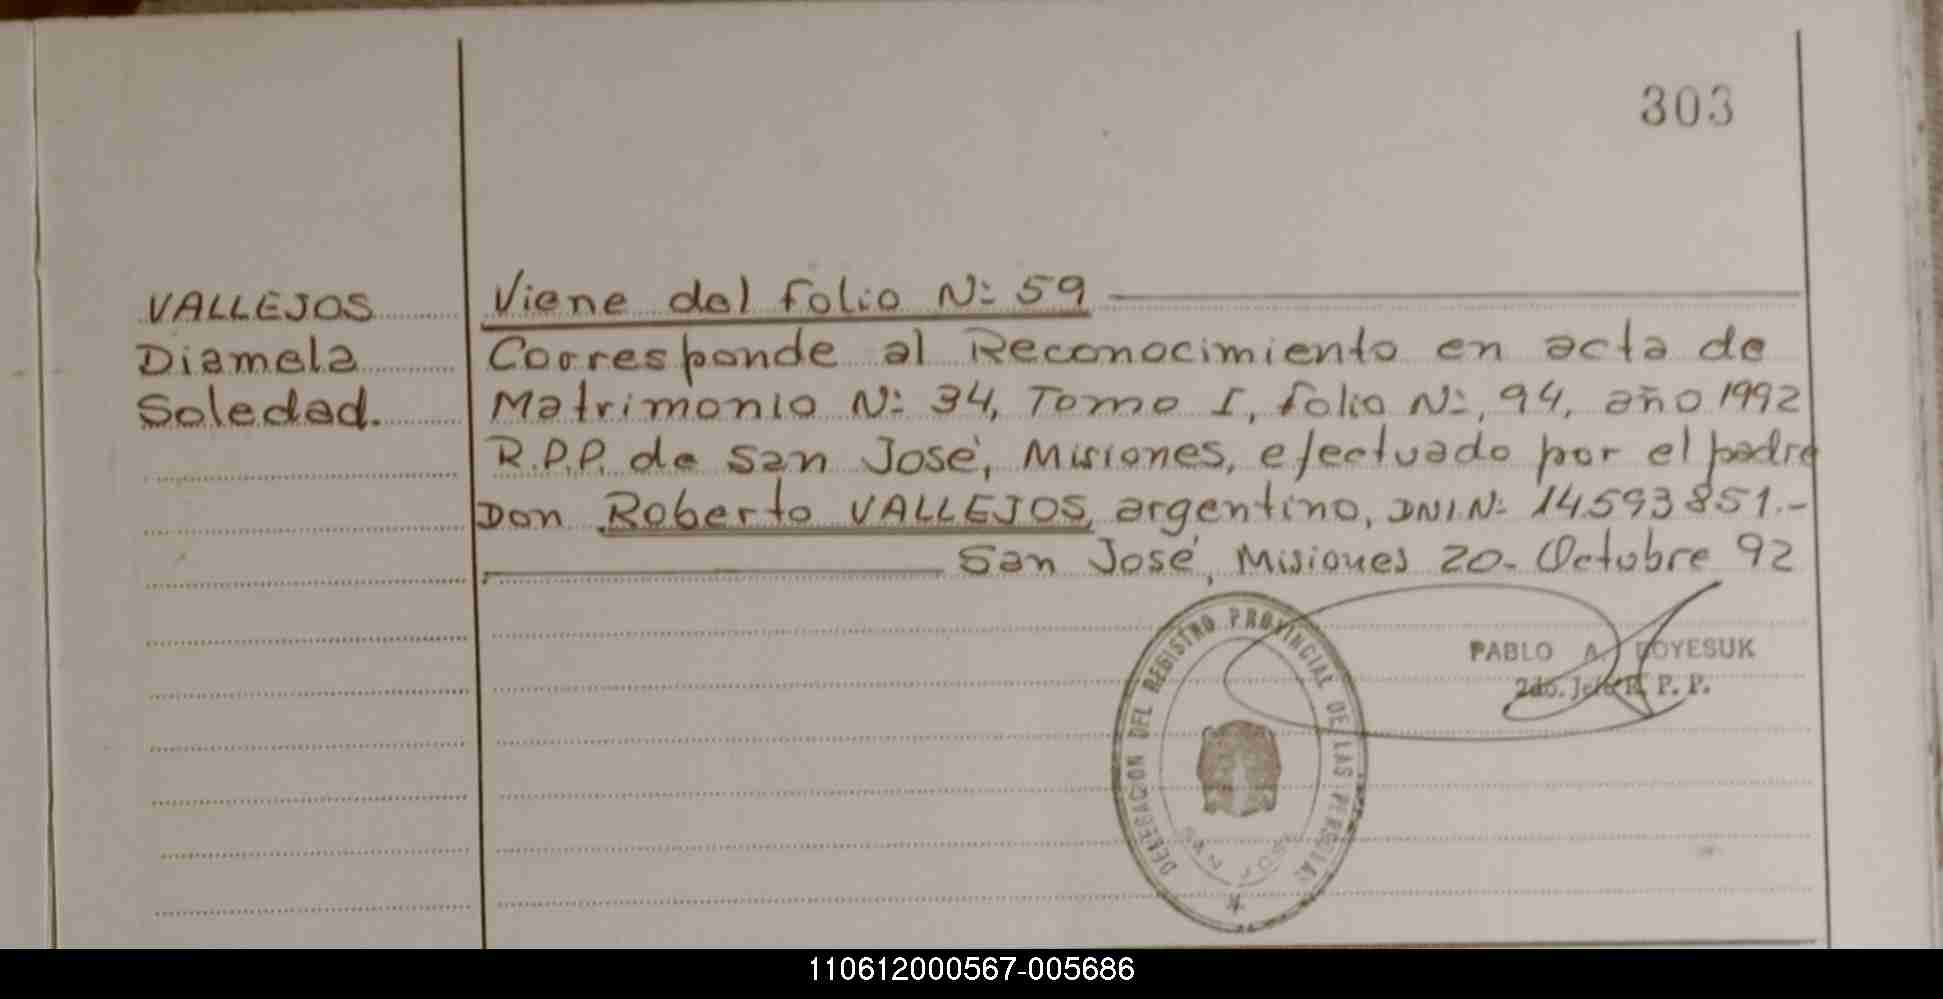 303
VALLEJOS
Diamela
Soledad.
Viene del folio Nº 59
Corresponde al Reconocimiento en acta de
Matrimonio Nº 34, Tomo I, folio Nº, 94, año 1992
R.P.P. de San José, Misiones, efectuado por el padre
Don Roberto VALLEJOS, argentino, DNI.Nº 14593851.-
San José, Misiones 20- Octubre 92
DELEGACION DEL REGISTRO PROVINCIAL DE LAS PERSONAS
SAN JOSE
PABLO A.
2do. Jefe R. P. P.
110612000567-005686